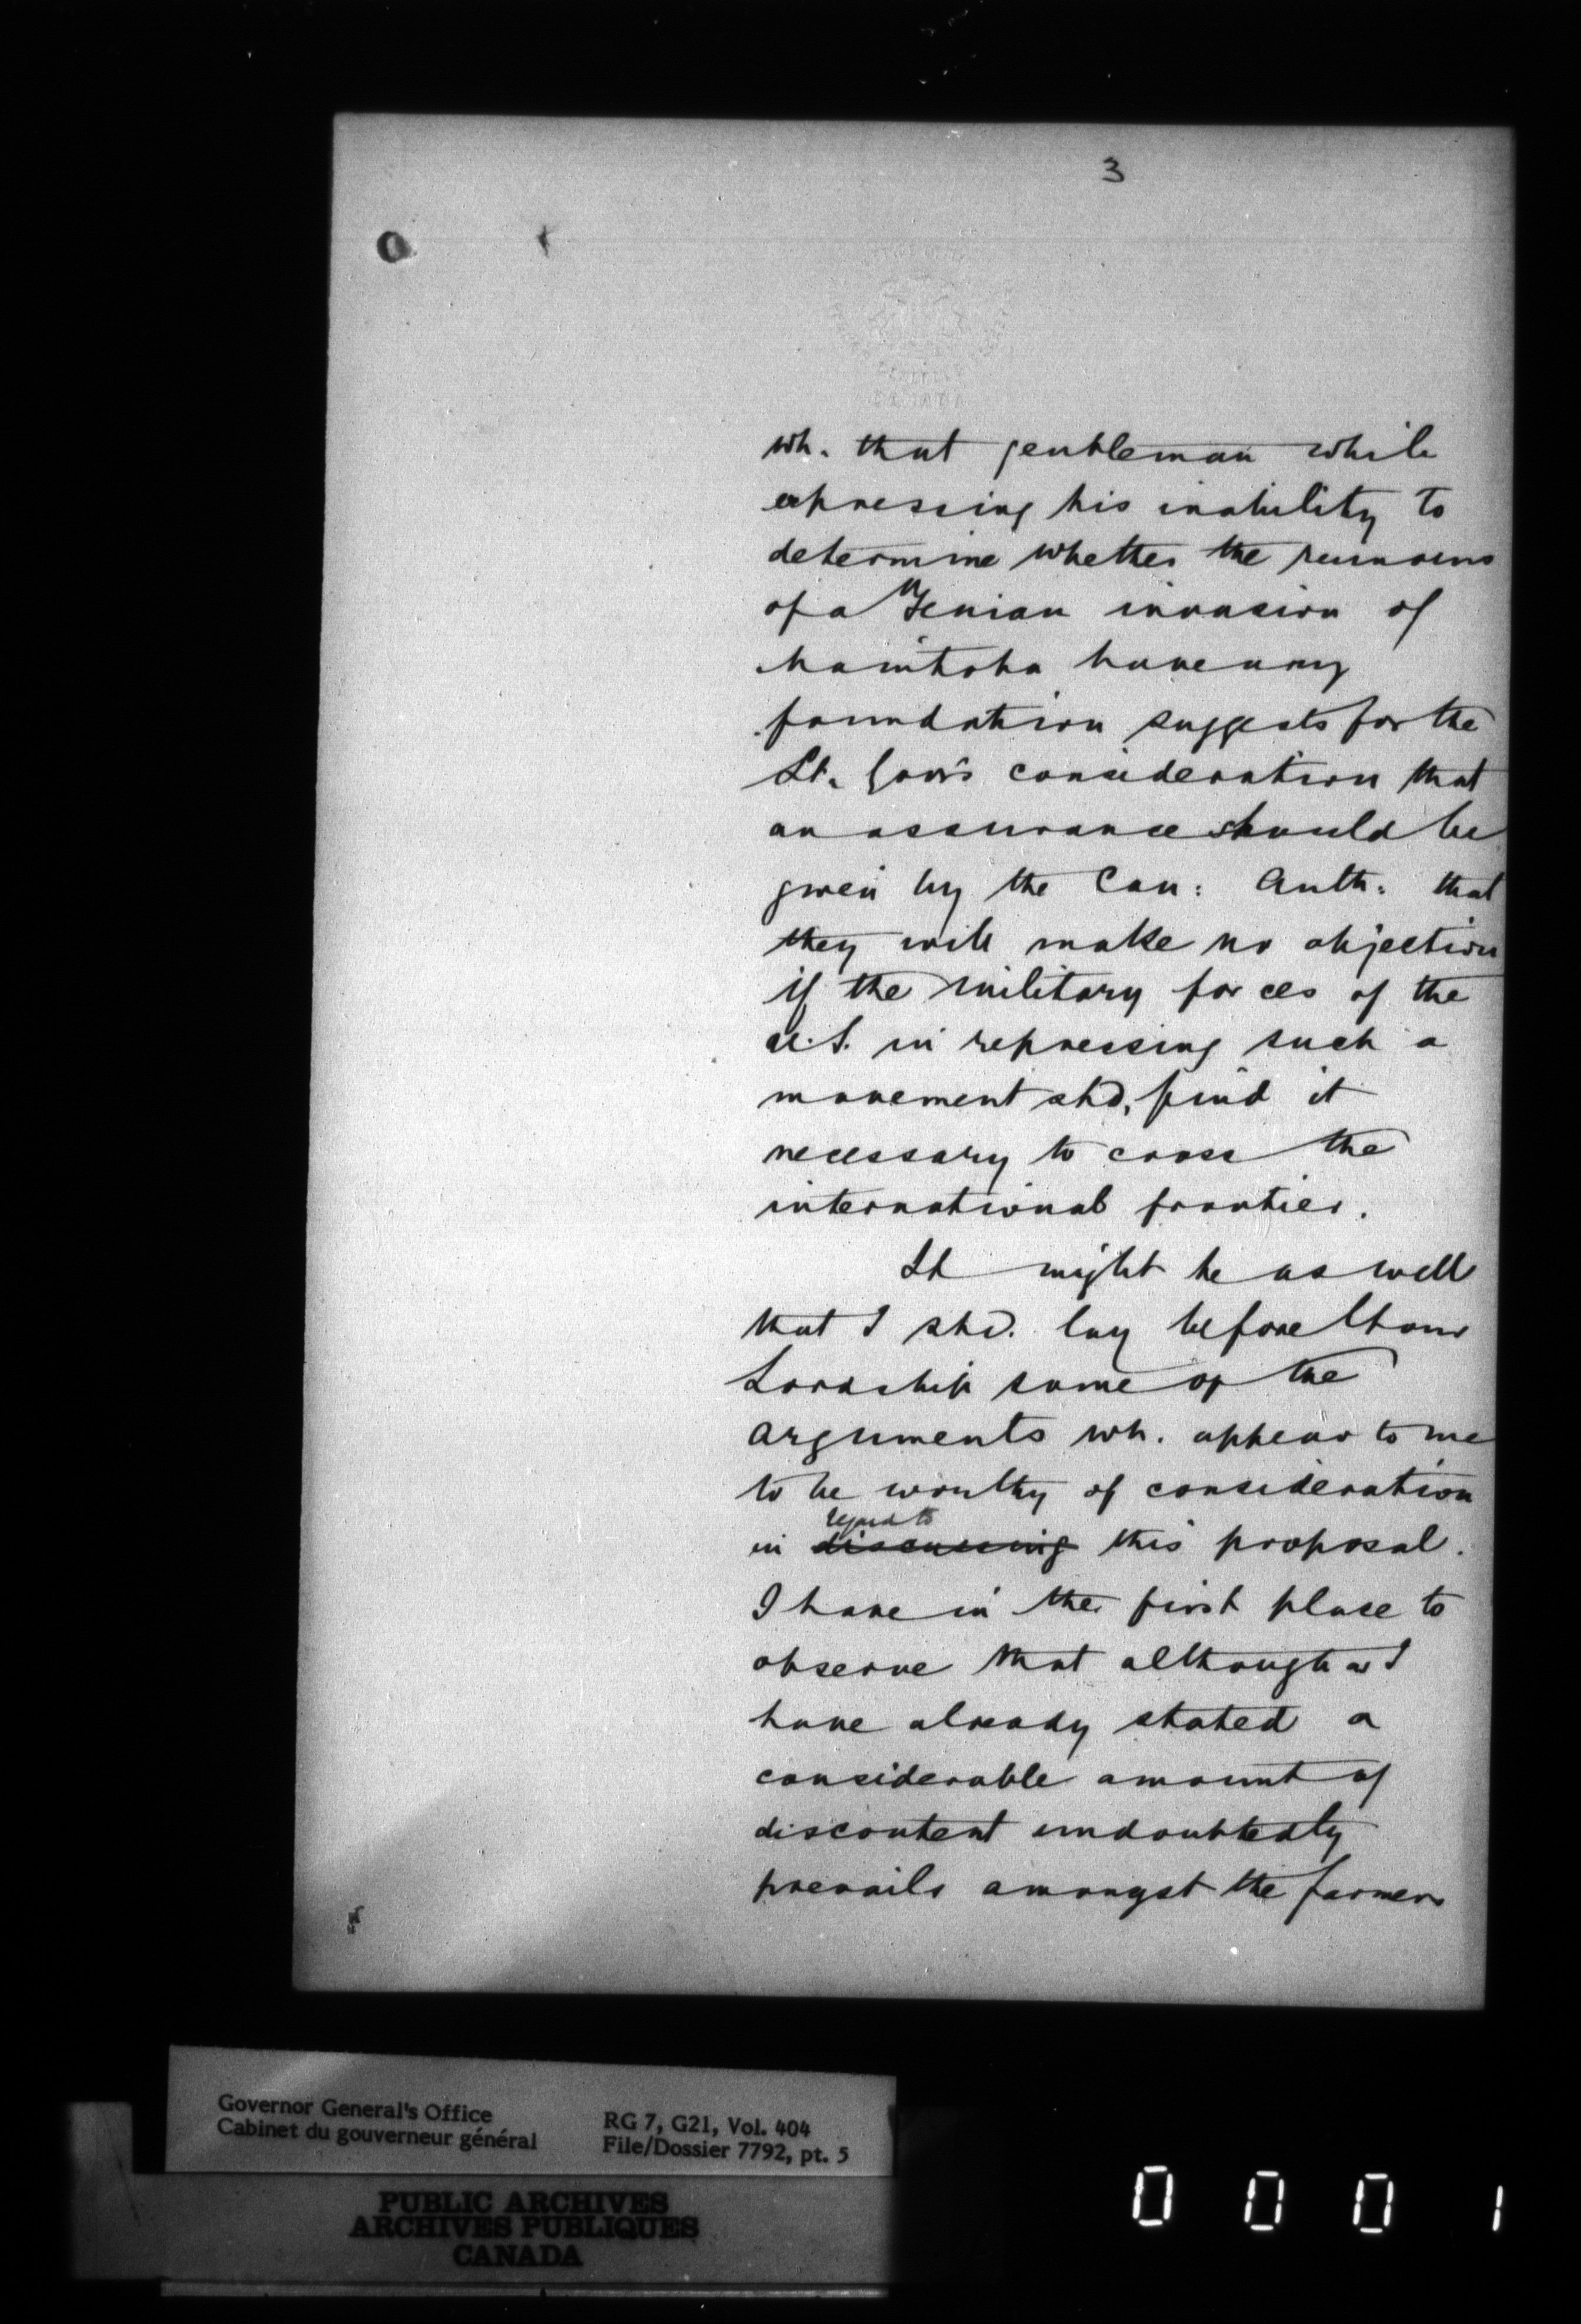 3
wh. that gentleman while
expressing his inability to
determine whether the rumours
of a Fenian invasion of
Manitoba have any
foundation suggests for the
Lt. Gov's consideration that
an assurance should be
given by the Can: Auth: that
they will make no objection
if the military forces of the
U.S. in repressing such a
movement shd. find it
necessary to cross the
international frontier.
It might be as well
that I shd. lay before Your
Lordship some of the
arguments wh. appear to me
to be worthy of consideration
regard to
in discussing this proposal.
I have in the first place to
observe that although as I
have already stated a
considerable amount of
discontent undoubtedly
prevails amongst the farmers
Governor General's Office
Cabinet du gouverneur général
RG 7, G21, Vol. 404
File/Dossier 7792, pt. 5
PUBLIC ARCHIVES
ARCHIVES PUBLIQUES
CANADA
0001